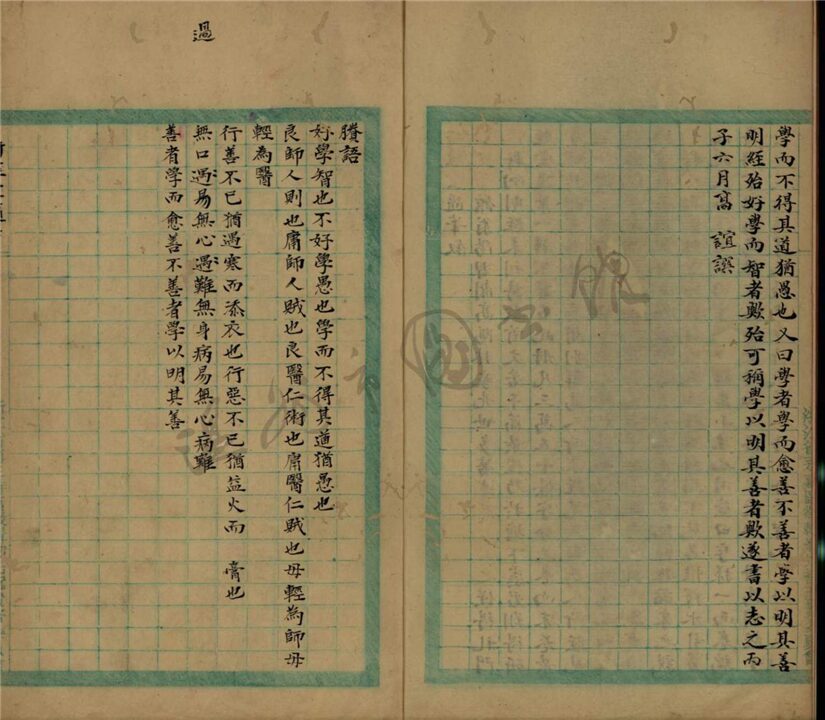 學而不得其道猶愚也又曰學者學而愈善不善者學以明其善
明經殆好學而智者歟殆可稱學以明其善者歟遂書以志之丙
子六月高 誼譔
過
賸語
好學智也不好學愚也學而不得其道猶愚也
良師人則也庸師人賊也良醫仁術也庸醫仁賊也毋輕為師毋
輕為醫
行善不已猶遇寒而添衣也行惡不已猶益火而 膏也
無口過易無心過難無身病易無心病難
善者學而愈善不善者學以明其善